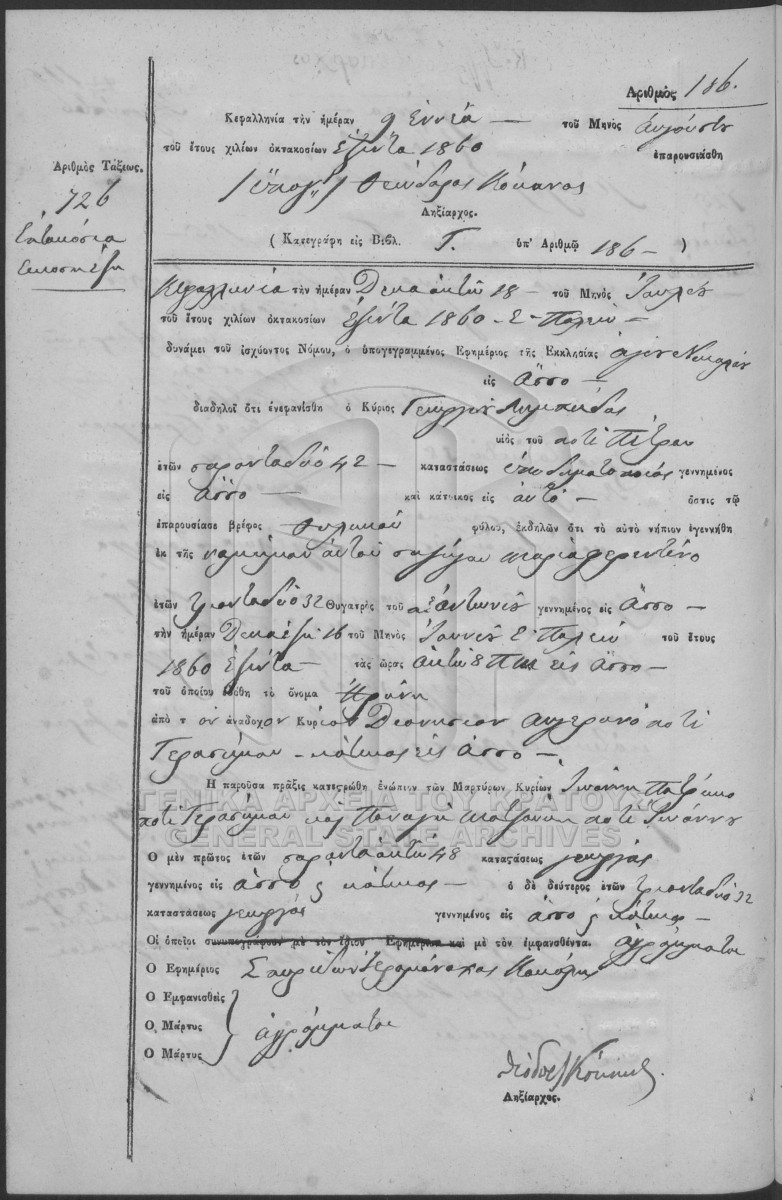 Αριθμὸς 186.
Κεφαλληνία τὴν ἡμέραν 9 Εννέα — τοῦ Μηνὸς Αυγούστου
τοῦ ἔτους χιλίων ὀκτακοσίων Εξήντα 1860 ἐπαρουσιάσθη
Θεόδωρος
Ληξίαρχος.
( Κατεγράφη εἰς Βιβλ. Γ. ὑπ' Αριθμῷ 186 — )
Αριθμὸς Τάξεως.
726
Επτακόσια
Εικοσιέξη
Κεφαλληνία τὴν ἡμέραν Δεκαοκτώ 18 — τοῦ Μηνὸς Ιουλίου
τοῦ ἔτους χιλίων ὀκτακοσίων Εξήντα 1860 - Ε. Παλαιόν —
δυνάμει τοῦ ἰσχύοντος Νόμου, ὁ ὑπογεγραμμένος Ἐφημέριος τῆς Εκκλησίας αγίου Νικολάου
εἰς Άσσο —
διαδηλοῖ ὅτι ἐνεφανίσθη ὁ Κύριος Γεώργιος
υἱὸς τοῦ ποτὲ Πέτρου
ἐτῶν σαρανταδύο 42 — καταστάσεως υποδηματοποιός γεννημένος
εἰς Άσσο — καὶ κάτοικος εἰς αυτό — ὅστις τῷ
ἐπαρουσίασε βρέφος θηλυκού φύλου, ἐκδηλῶν ὅτι τὸ αὐτὸ νήπιον ἐγεννήθη
ἐκ τῆς νομίμου αυτού συζύγου Μαρία
ἐτῶν τριανταδύο 32 Θυγατρὸς τοῦ Αντωνίου γεννημένος εἰς Άσσο —
τὴν ἡμέραν Δεκαέξη 16 τοῦ Μηνὸς Ιουνίου Ε. Παλαιόν τοῦ ἔτους
1860 Εξήντα — τὰς ὥρας οκτώ 8 ΠΜ εἰς Άσσο —
τοῦ ὁποίου ἐδόθη τὸ ὄνομα Ηρήνη
ἀπὸ τὸν ἀνάδοχον Κύριον Διονήσιον ποτέ
Γερασήμου - κάτοικος εις Άσσο —
Η παροῦσα πρᾶξις κατεστρώθη ἐνώπιον τῶν Μαρτύρων Κυρίων Ιωάννη
ποτέ Γερασήμου και Παναγή ποτέ Ιωάννου
ΓΕΝΙΚΑ ΑΡΧΕΙΑ ΤΟΥ ΚΡΑΤΟΥΣ
GENERAL STATE ARCHIVES
Ο μὲν πρῶτος ἐτῶν σαρανταοκτώ 48 καταςάσεως γεωργός
γεννημένος εἰς άσσο κάτοικος — ὁ δὲ δεύτερος ἐτῶν τριανταδύο 32
καταστάσεως γεωργός γεννημένος εἰς άσσο κάτοικος —
Οἱ ὁποῖοι συνυπογράφουν μὲ τὸν ἴδιον Ἐφημέριον καὶ μὲ τὸν ἐμφανισθέντα. αγράμματοι
Ο Ἐφημέριος Σπυρίδων Ιερομόναχος
Ο Εμφανισθεὶς
Ο Μάρτυς αγράμματοι
Ο Μάρτυς
Ληξίαρχος.